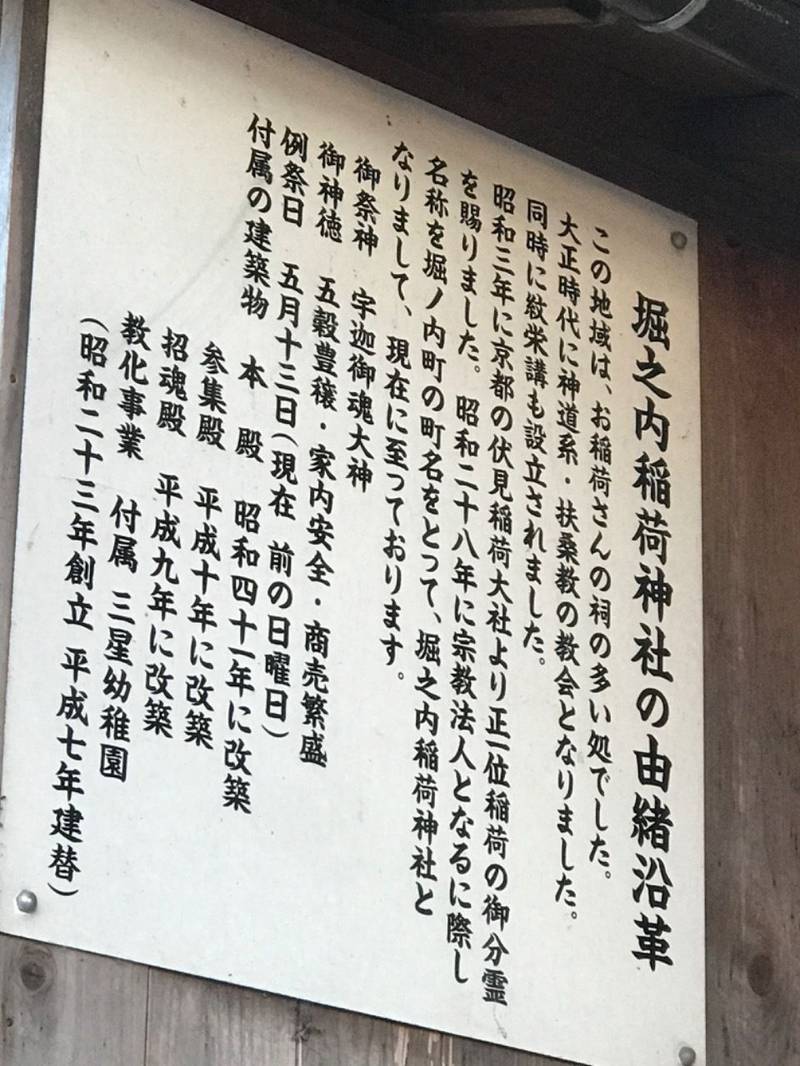 堀之内稲荷神社の由緒沿革
この地域は、お稲荷さんの祠の多い処でした。
大正時代に神道系・扶桑教の教会となりました。
同時に紋栄講も設立されました。
昭和三年に京都の伏見稲荷大社より正一位稲荷の御分霊
を賜りました。昭和二十八年に宗教法人となるに際し
名称を堀ノ内町の町名をとって、堀之内稲荷神社と
なりまして、現在に至っております。
御祭神 宇迦御魂大神
御神徳 五穀豊穣・家内安全・商売繁盛
例祭日 五月十三日(現在 前の日曜日)
付属の建築物 本 殿 昭和四十一年に改築
参集殿 平成十年に改築
招魂殿 平成九年に改築
教化事業 付属 三星幼稚園
(昭和二十三年創立 平成七年建替)